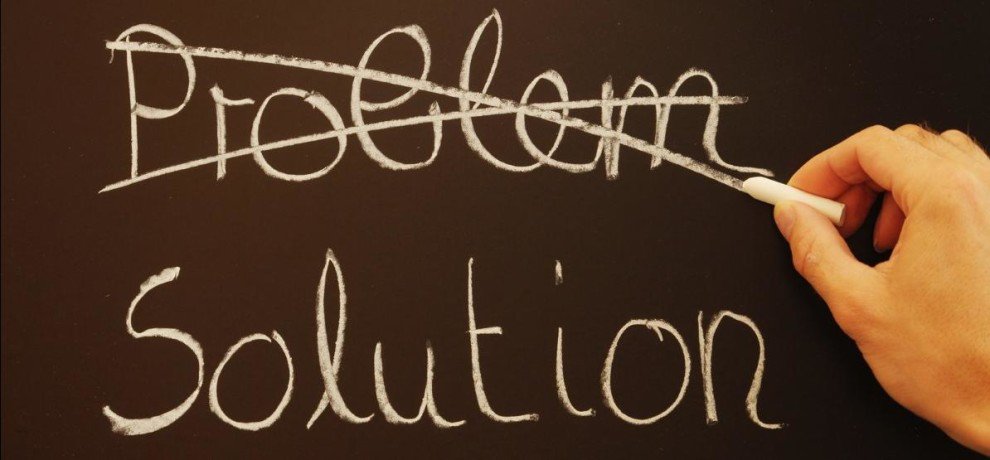 Problem
Solution